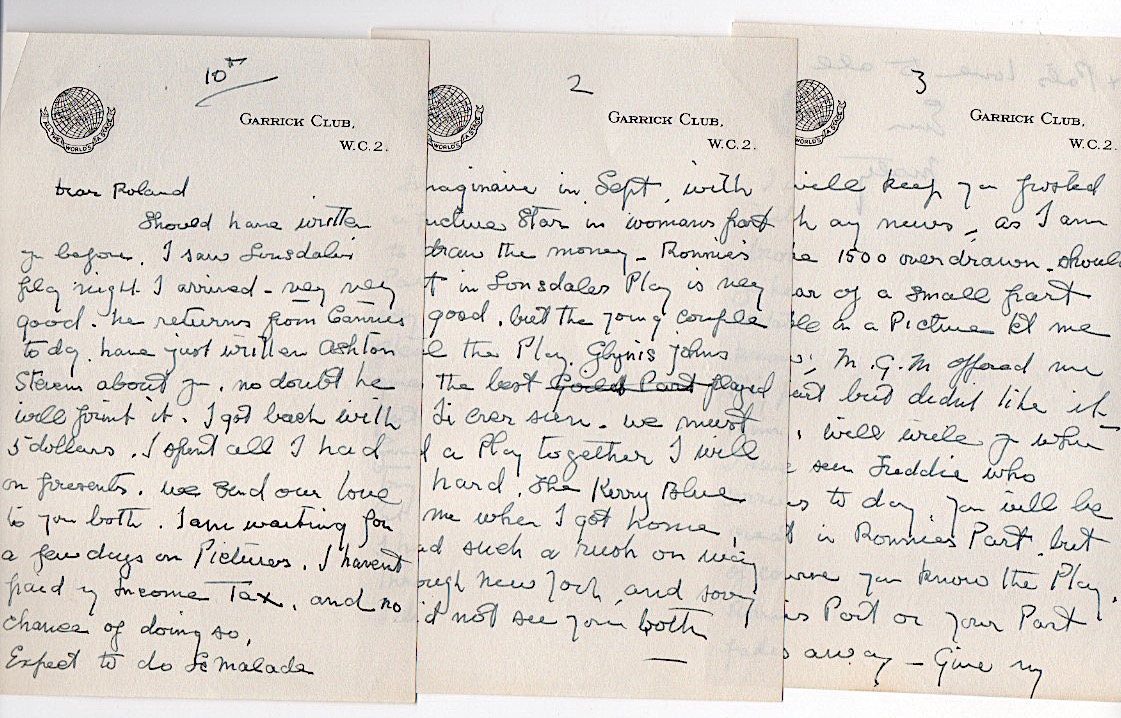 10th
ALL THE WORLD'S A STAGE
GARRICK CLUB,
W.C.2.
Dear Roland
Should have written
yr before. I saw Lonsdales
play night I arrived - very very
good. he returns from Cannes
to day. have just written Ashton
Stevens about yr. no doubt he
will print it. I got back with
5 dollars. I spent all I had
on presents. we send our love
to you both. I am waiting for
a few days on Pictures. I havent
paid my Income Tax. and no
chance of doing so,
Expect to do Le Malade
2
WORLD'S A STAGE
GARRICK CLUB,
W.C.2.
maginaire in Sept, with
Star in womans part
draw the money - Ronnies
in Lonsdales Play is very
good. but the young couple
the Play. Glynis Johns
the best Part played
ever seen. we must
a Play together I will
hard. The Kerry Blue
me when I got home.
such a rush on way
ough New York, and sorry
not see you both
3
WORLD'S A STAGE
GARRICK CLUB,
W.C.2.
will keep yr posted
any news, as I am
1500 overdrawn. should
of a small part
in a Picture let me
M.G.M offered me
but didnt like it
will write yr when
seen Freddie who
to day. you will be
in Ronnies Part. but
you know the Play.
Part or your Part
away - Give my